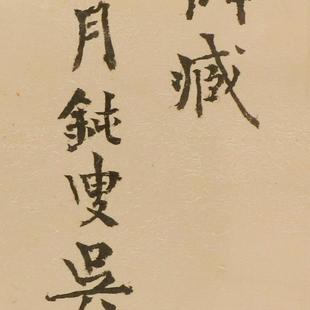 臧
月鈍叟吳